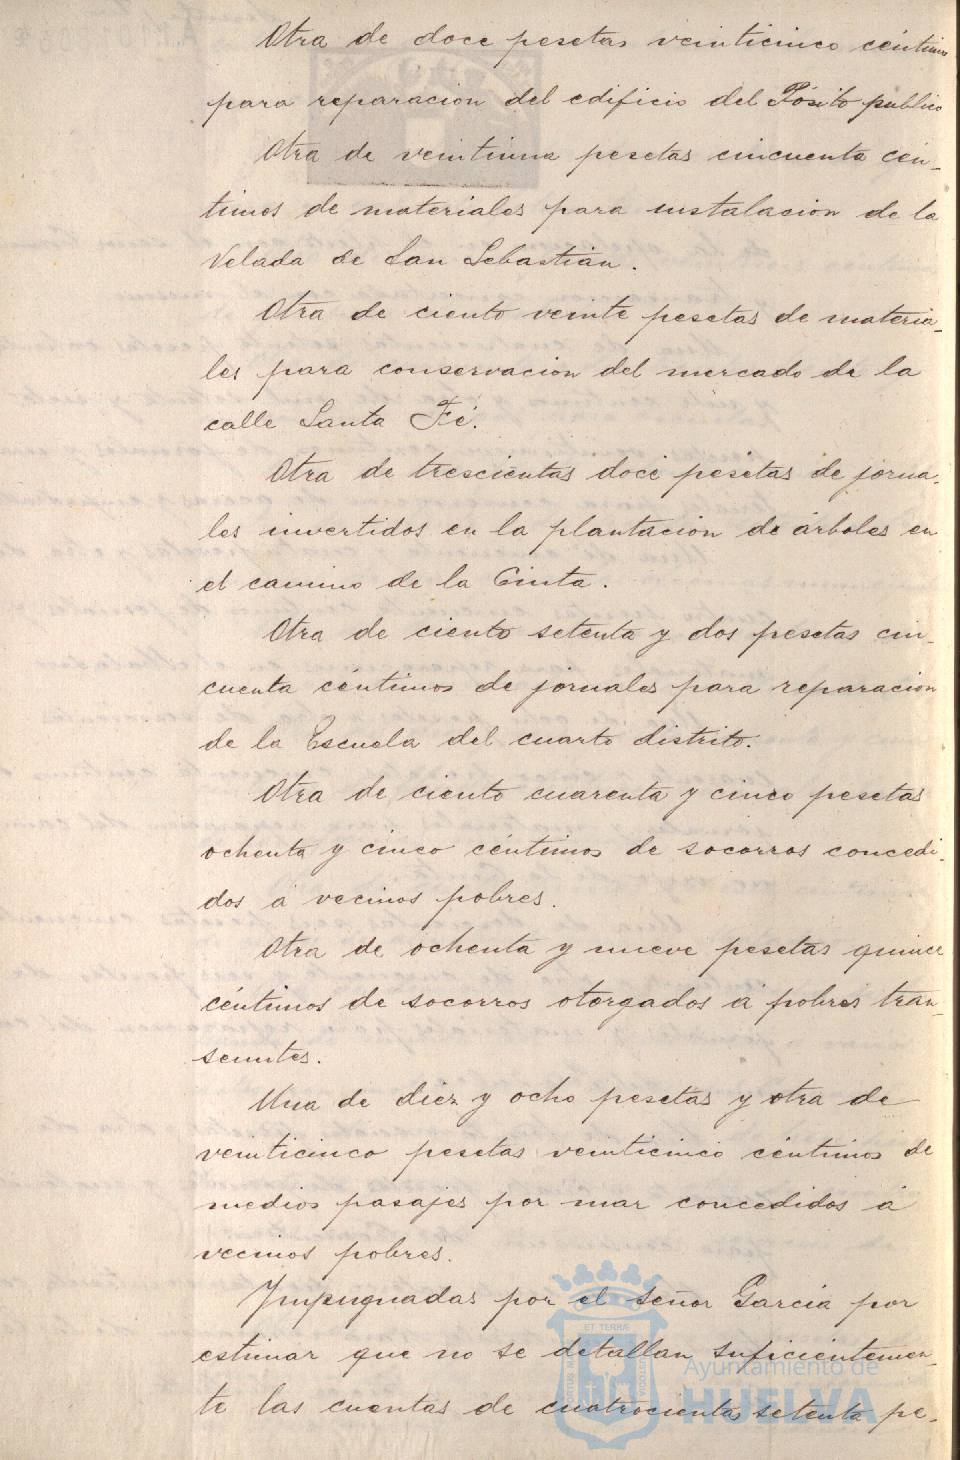 Otra de doce pesetas veinticinco céntimos
para reparacion del edificio del Pósito publico
Otra de veintiuna pesetas cincuenta cén-
timos de materiales para instalacion de la
Velada de San Sebastián.
Otra de ciento veinte pesetas de materia-
les para conservacion del mercado de la
calle Santa Fé.
Otra de trescientas doce pesetas de jorna-
les invertidos en la plantacion de árboles en
el camino de la Cinta.
Otra de ciento setenta y dos pesetas cin-
cuenta céntimos de jornales para reparacion
de la Escuela del cuarto distrito.
Otra de ciento cuarenta y cinco pesetas
ochenta y cinco céntimos de socorros concedi-
dos á vecinos pobres.
Otra de ochenta y nueve pesetas quince
céntimos de socorros otorgados á pobres tran-
seuntes.
Una de diez y ocho pesetas y otra de
veinticinco pesetas veinticinco céntimos de
medios pasajes por mar concedidos á
vecinos pobres.
Impugnadas por el Señor García por
estimar que no se detallan suficientemen-
te las cuentas de cuatrocientas setenta pe-
ET TERRÆ
Ayuntamiento de
HUELVA